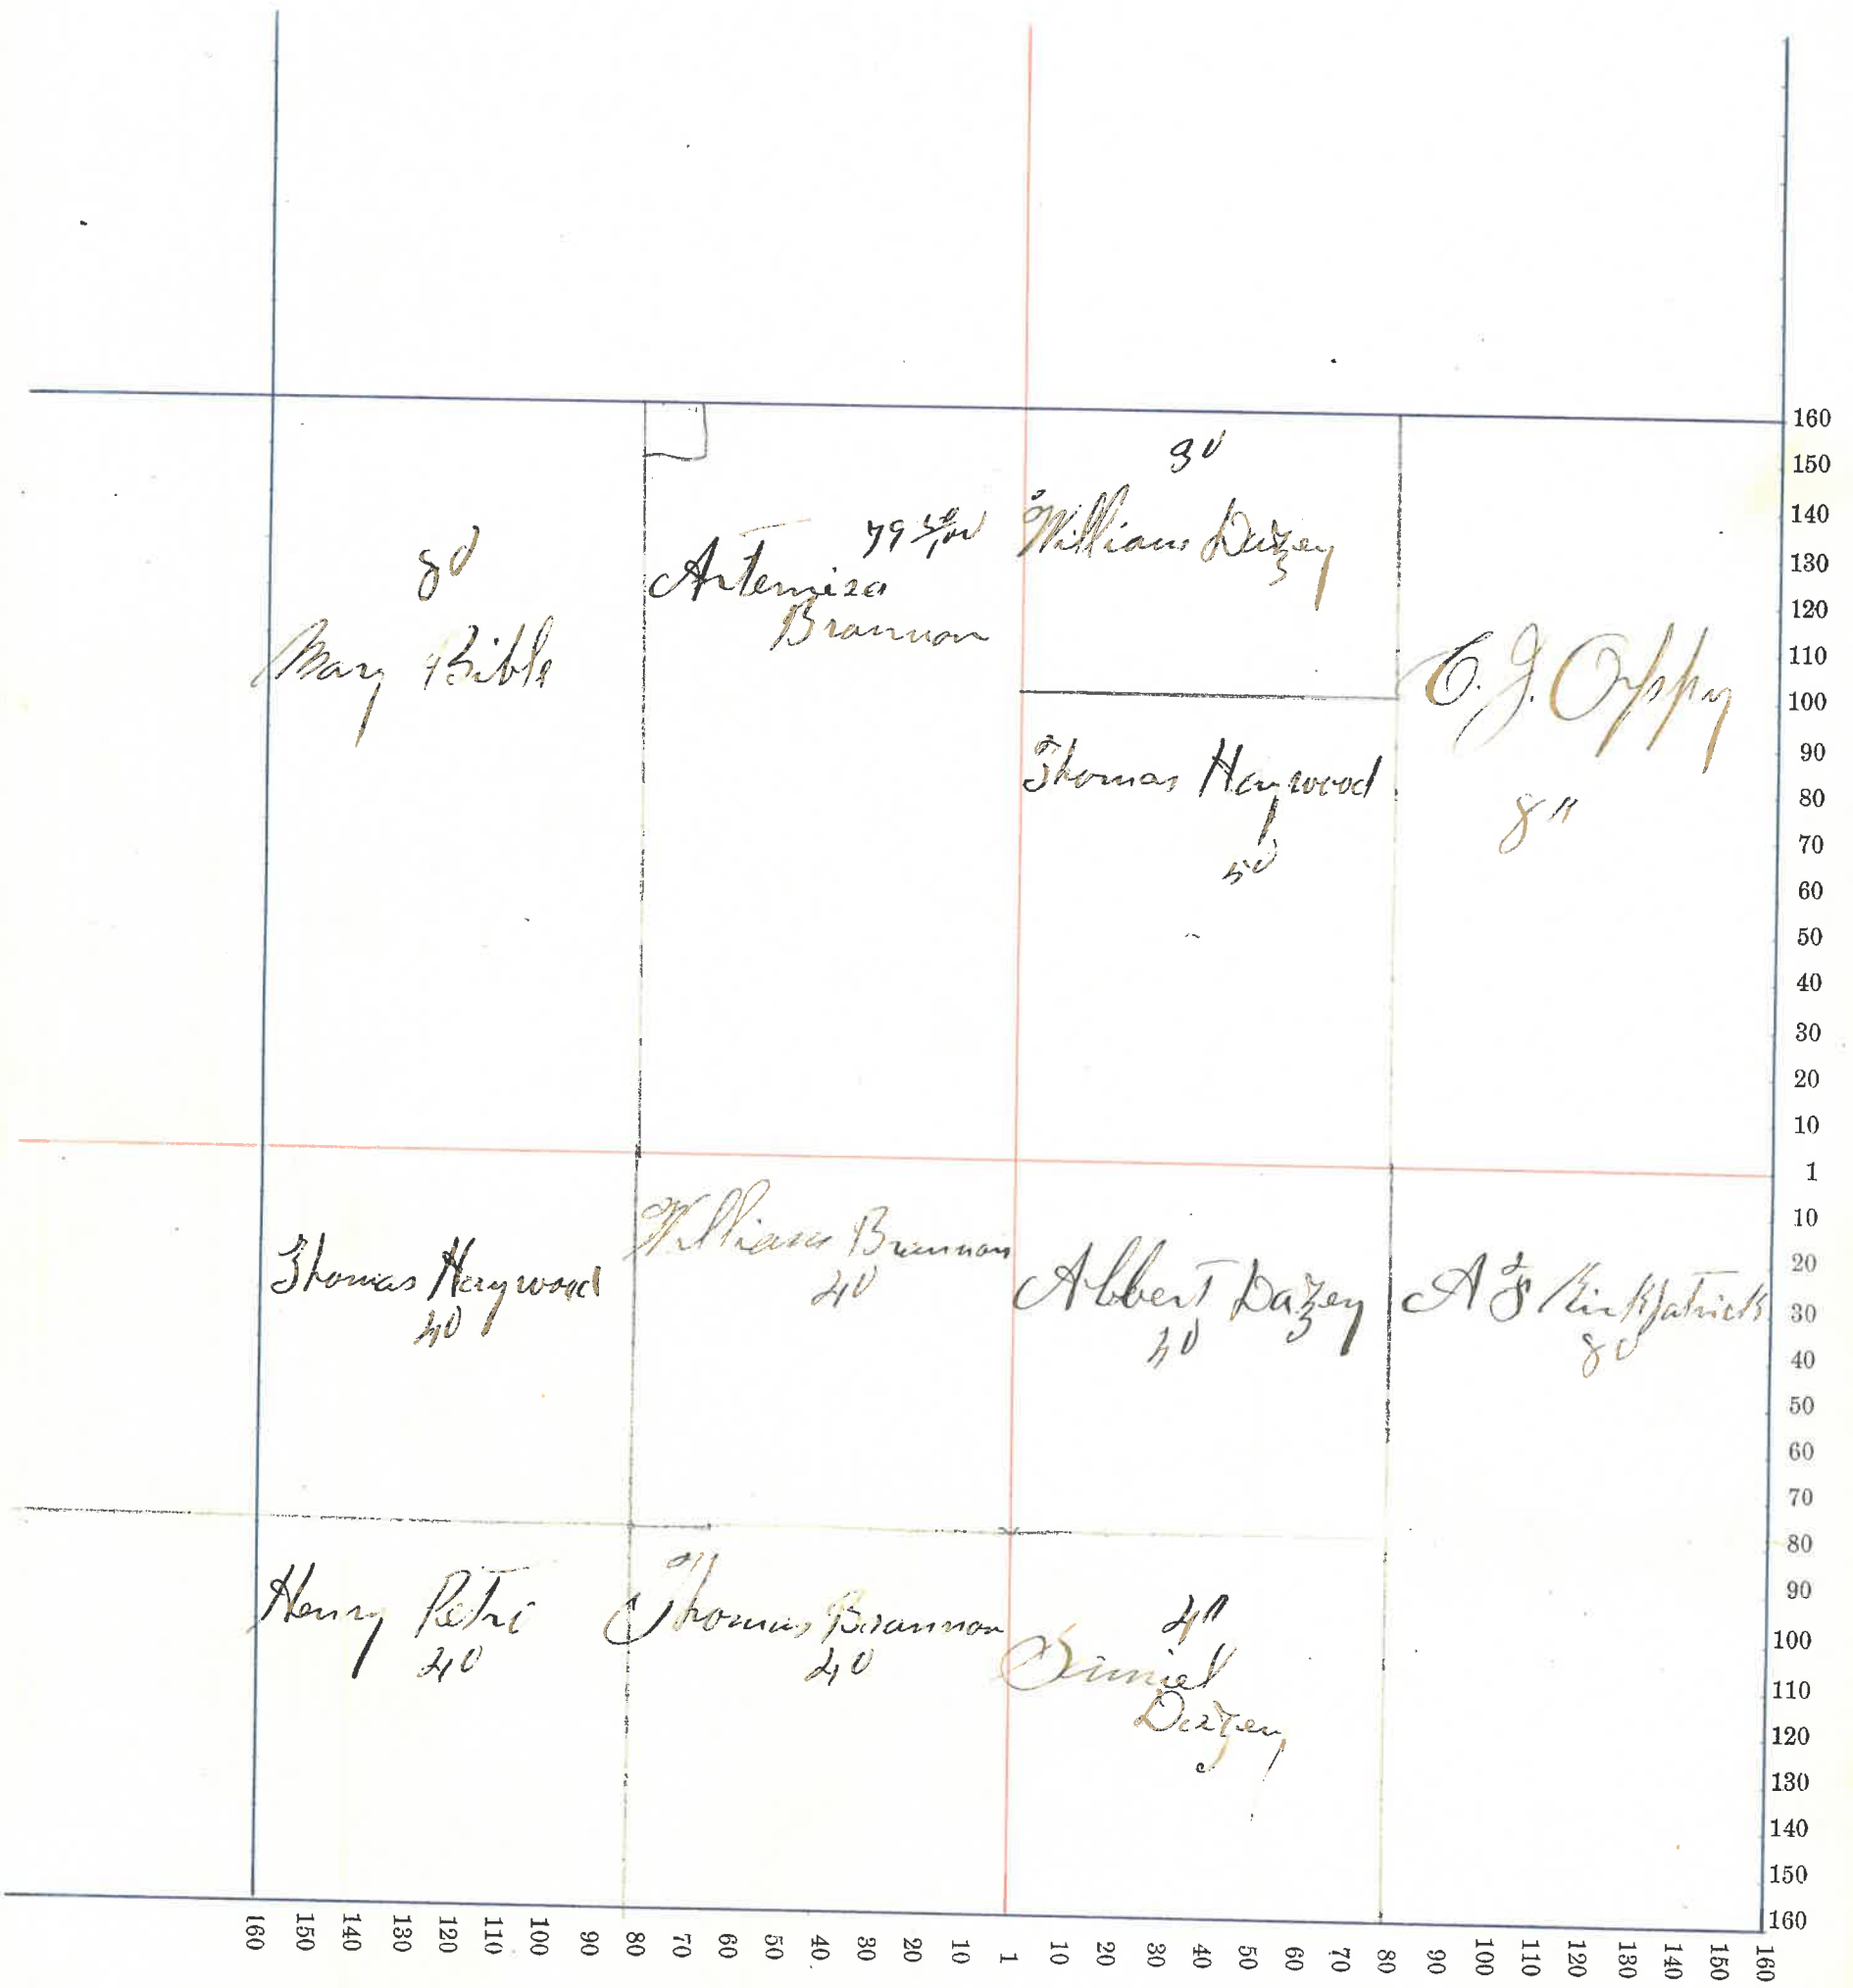 30
William Dazey
80
Mary Bible
79 50/100
Artemisa
Brannon
C. J. Oppy
80
Thomas Haywood
50
Thomas Haywood
40
William Brannon
40
Albert Dazey
40
A F Kirkpatrick
80
Henry Petri
40
Thomas Brannon
40
40
Dazey
160
150
140
130
120
110
100
90
80
70
60
50
40
30
20
10
1
10
20
30
40
50
60
70
80
90
100
110
120
130
140
150
160
160 150 140 130 120 110 100 90 80 70 60 50 40 30 20 10 1 10 20 30 40 50 60 70 80 90 100 110 120 130 140 150 160